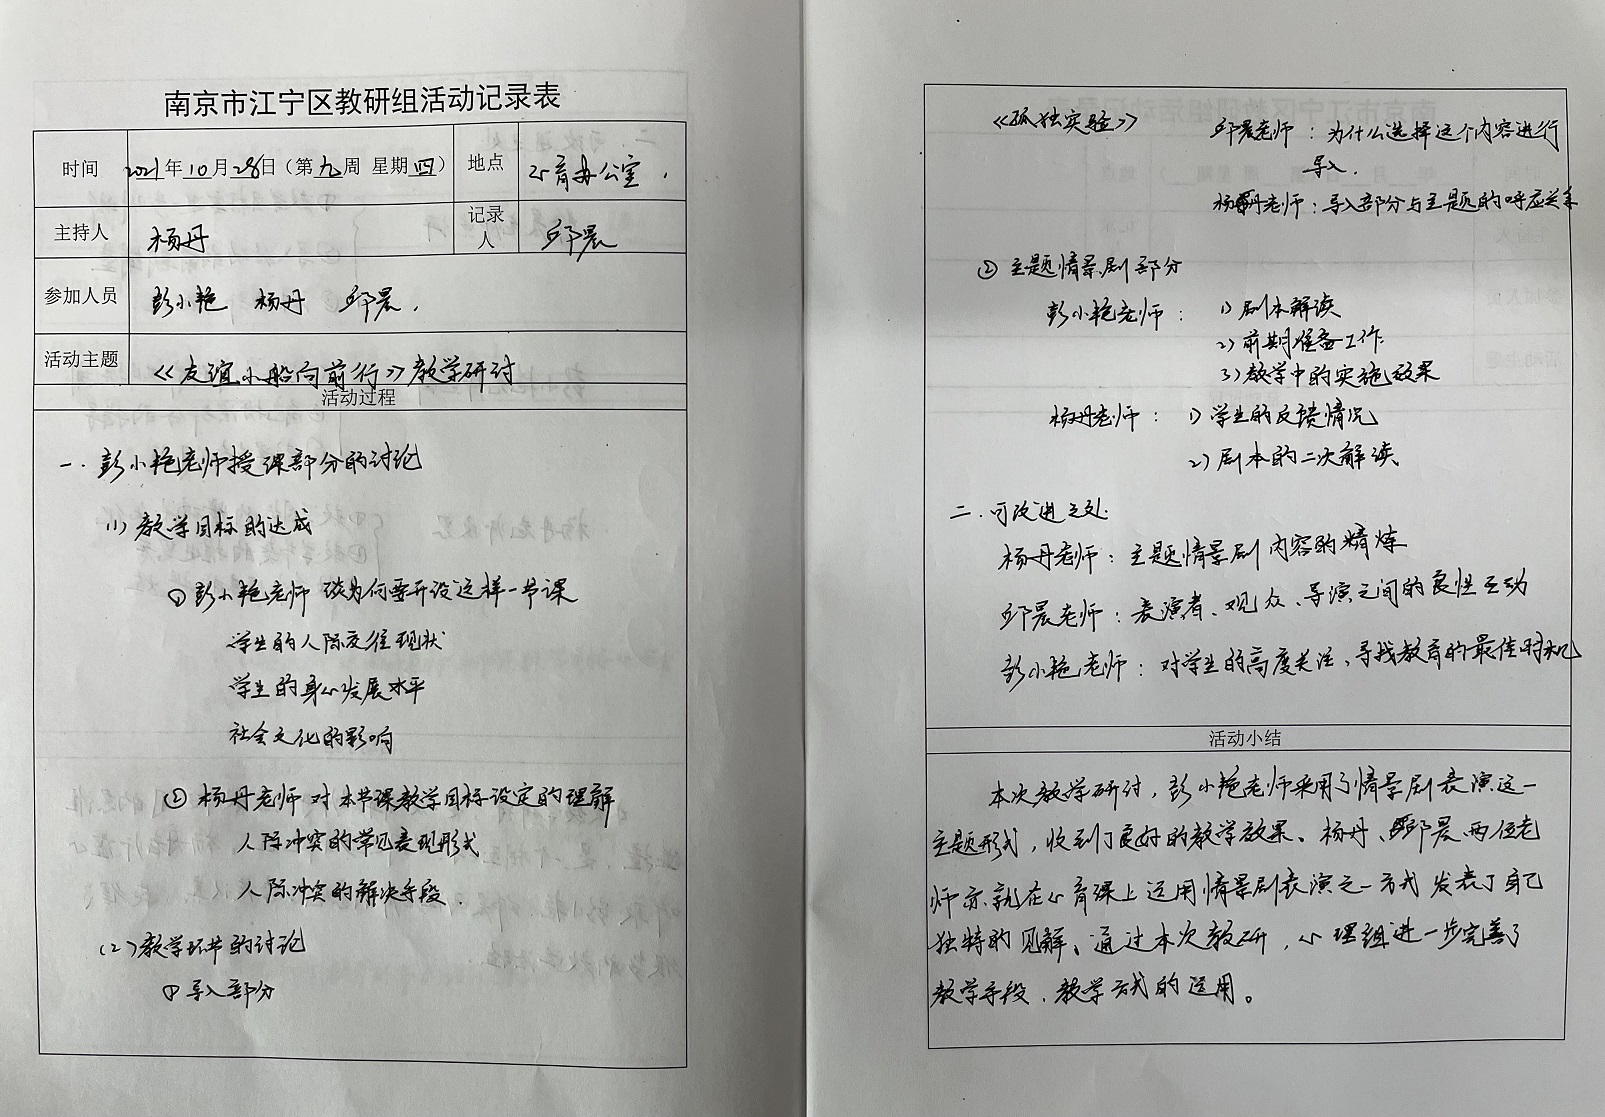 南京市江宁区教研组活动记录表
时间 2021年10月28日（第九周 星期四） 地点 心育办公室.
主持人 杨丹 记录人 邱晨
参加人员 彭小艳 杨丹 邱晨.
活动主题 《友谊小船向前行》教学研讨
活动过程
一.彭小艳老师授课部分的讨论
(1)教学目标的达成
①彭小艳老师谈为何要开设这样一节课
学生的人际交往现状
学生的身心发展水平
社会文化的影响
②杨丹老师对本节课教学目标设定的理解
人际冲突的常见表现形式
人际冲突的解决手段.
(2)教学环节的讨论
①导入部分
《孤独实验》 邱晨老师：为什么选择这个内容进行
导入.
杨丹老师：导入部分与主题的呼应关系
②主题情景剧部分
彭小艳老师： 1)剧本解读
2)前期准备工作
3)教学中的实施效果
杨丹老师： 1)学生的反馈情况
2)剧本的二次解读
二.可改进之处
杨丹老师：主题情景剧内容的精炼
邱晨老师：表演者、观众、导演之间的良性互动
彭小艳老师：对学生的高度关注、寻找教育的最佳时机
活动小结
本次教学研讨，彭小艳老师采用了情景剧表演这一
主题形式，收到了良好的教学效果。杨丹、邱晨两位老
师亦就在心育课上运用情景剧表演之一方式发表了自己
独特的见解。通过本次教研，心理组进一步完善了
教学手段、教学方式的运用。